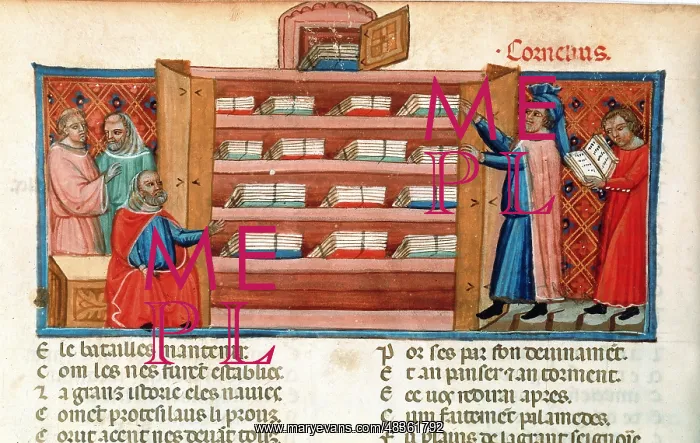 · Cornelius.
ME
PL
ME
PL
E le batailles maintenir.
C om les nes furent establies
⁊ a grans istorie eles nauies
C omet protesilaus li prouz
P or ses par son deuinamēt.
E t an panser ⁊ an torment.
E ce uoꝰ redirai apres.
C um faitemēt palamedes.
www.maryevans.com/48361792